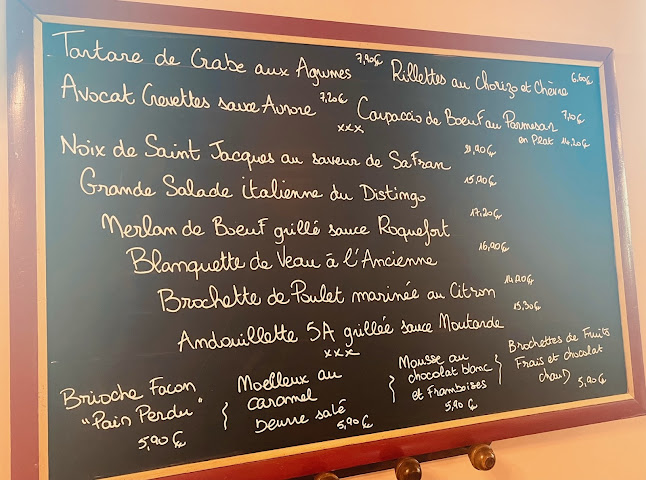 Tartare de Crabe aux Agrumes 7,90€ Rillettes au Chorizo et Chèvre 6,60€
Avocat Crevettes sauce Aurore 7,20€ Carpaccio de Boeuf au Parmesan 7,10€
xxx en Plat 14,20€
Noix de Saint Jacques au saveur de Safran
Grande Salade italienne du Distingo 15,90€
Merlan de Boeuf grillé sauce Roquefort 17,20€
Blanquette de Veau à l'Ancienne 16,00€
Brochette de Poulet marinée au Citron
Andouillette 5A grillée sauce Moutarde 15,30€
xxx
Brioche Facon
"Pain Perdu"
5,90€
Moelleux au
caramel
beurre salé
5,90€
Mousse au
chocolat blanc
et Framboises
5,90€
Brochettes de Fruits
Frais et chocolat
chaud
5,90€